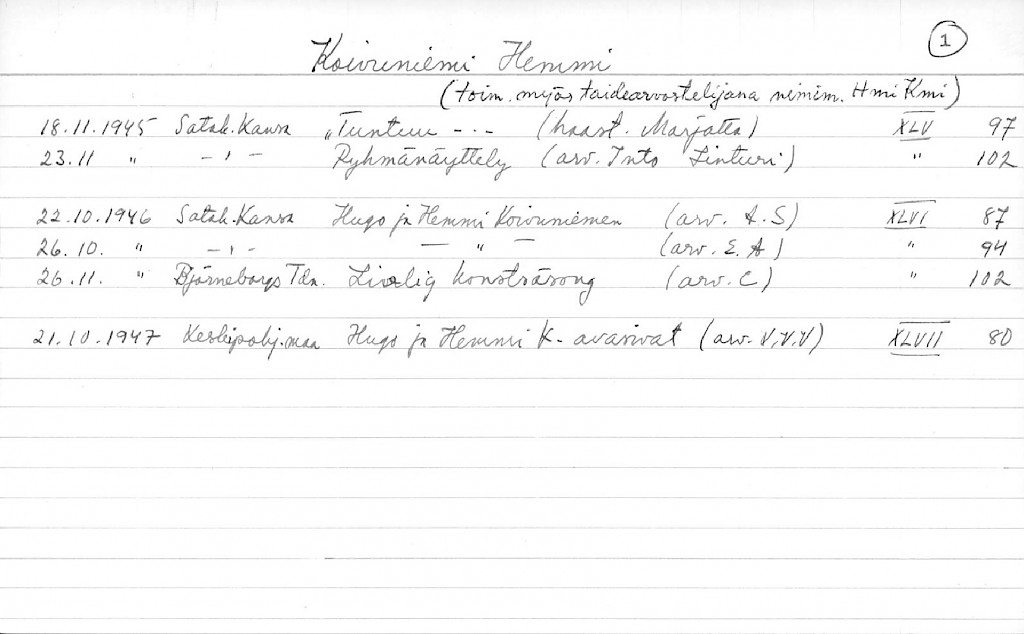 1
Koivuniemi Hemmi
(toim. myös taidearvostelijana nimim. Hmi Kmi)
18.11.1945 Satak.Kansa „Tuntuu -.- (haast. Marjatta) XLV 97
23.11 " -,- Ryhmänäyttely (arv. Into Linturi) " 102
22.10.1946 Satak.Kansa Hugo ja Hemmi Koivuniemen (arv. A.S) XLVI 87
26.10. " -,- — " — (arv. E.A) " 94
26.11. " Björneborgs Tdn. Livlig konstsäsong (arv. C) " 102
21.10.1947 Keskipohj.maa Hugo ja Hemmi K- avasivat (arv. V.V.V) XLVII 80